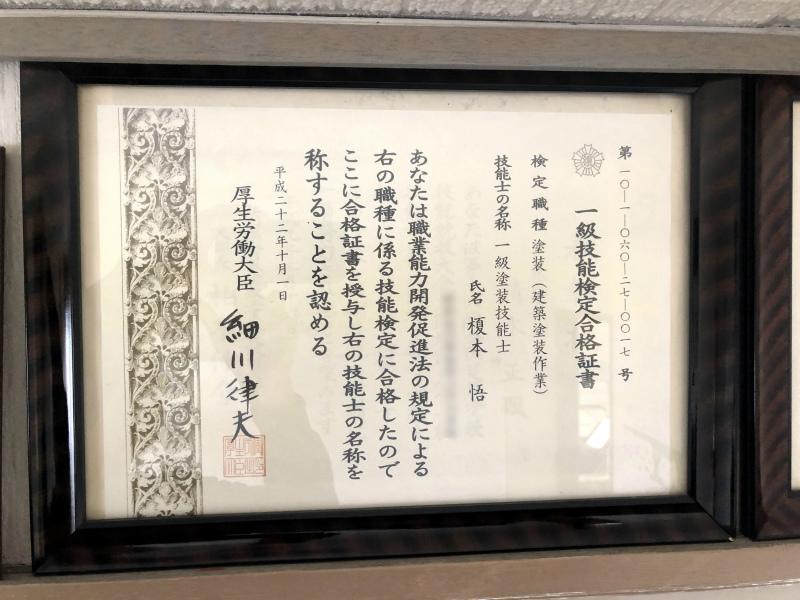 第一〇―一―〇六〇―二七―〇〇一七号
一級技能検定合格証書
検定職種 塗装（建築塗装作業）
技能士の名称 一級塗装技能士
氏名 榎本 悟
あなたは職業能力開発促進法の規定による
右の職種に係る技能検定に合格したので
ここに合格証書を授与し右の技能士の名称を
称することを認める
平成二十二年十月一日
厚生労働大臣 細川律夫